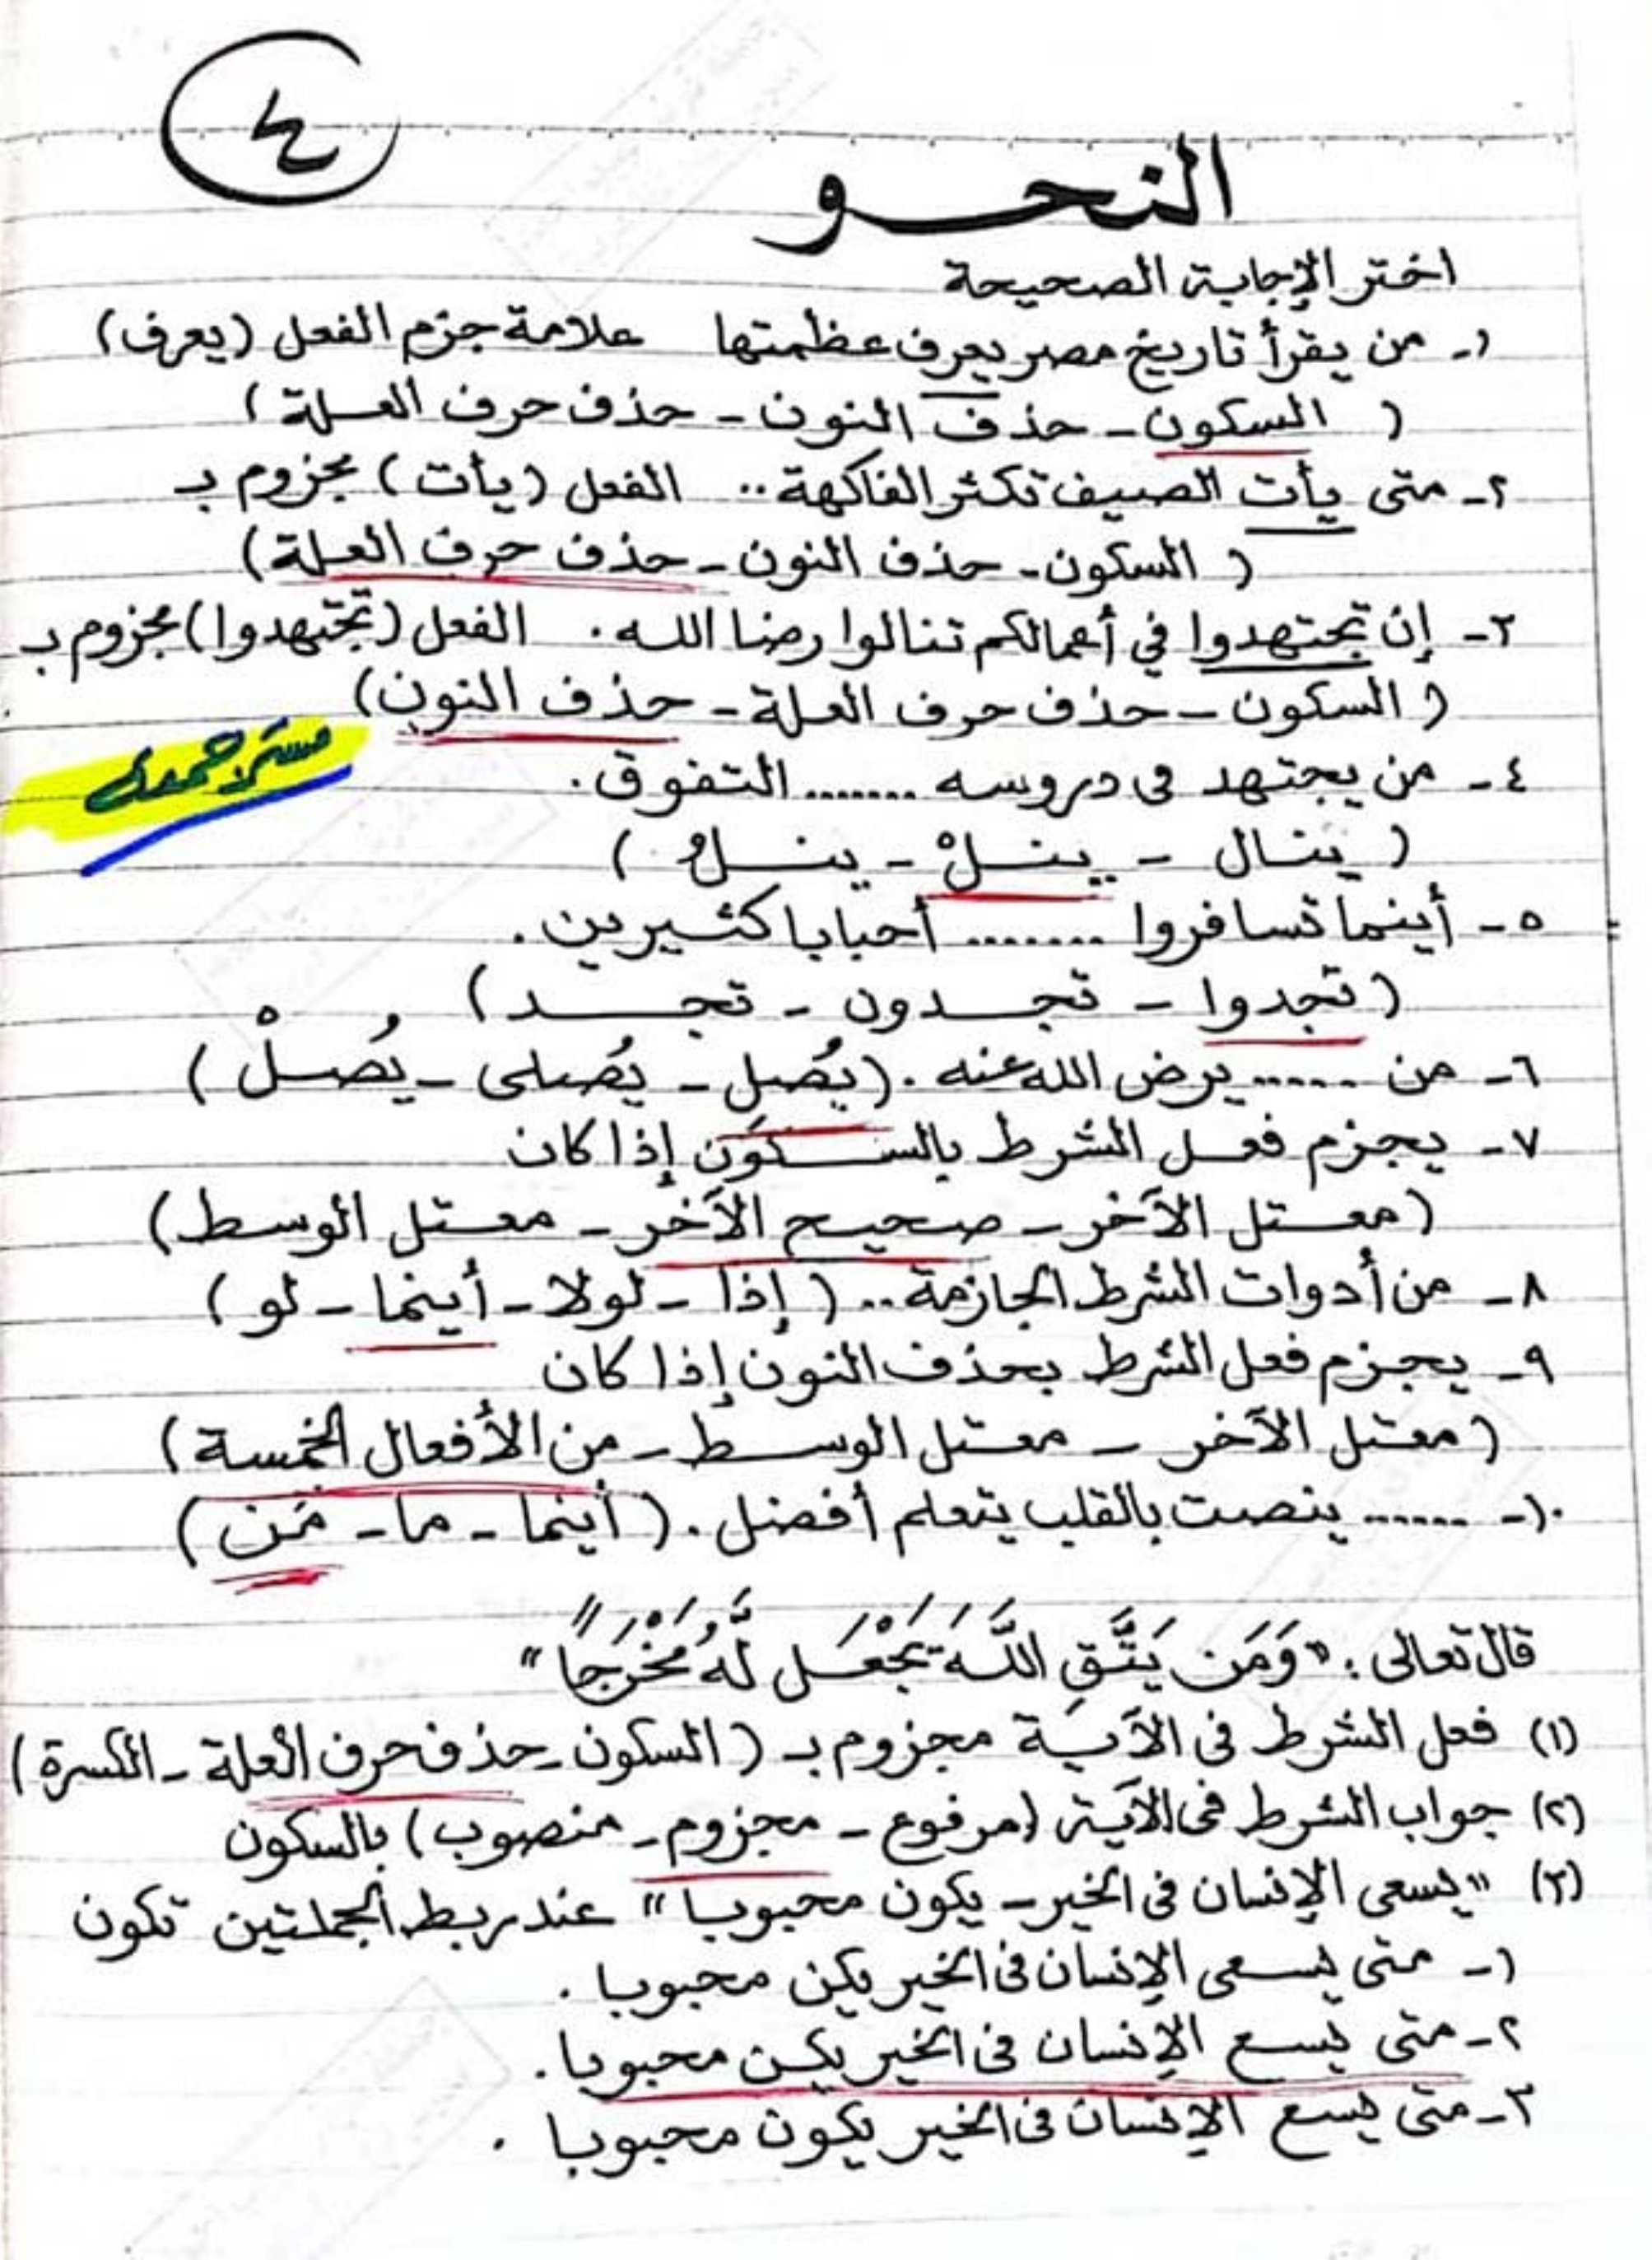 ٤
النحو
اختر الإجابة الصحيحة
١- من يقرأ تاريخ مصر يعرف عظمتها علامة جزم الفعل (يعرف)
( السكون - حذف النون - حذف حرف العلة )
٢- متى يأت الصيف تكثر الفاكهة .. الفعل (يأت) مجزوم بـ
( السكون - حذف النون - حذف حرف العلة)
٣- إن تجتهدوا في أعمالكم تنالوا رضا الله . الفعل (تجتهدوا) مجزوم بـ
( السكون - حذف حرف العلة - حذف النون)
٤- من يجتهد فى دروسه ....... التفوق .
( ينال - ينلْ - ينلُ )
٥- أينما تسافروا ....... أحبابا كثيرين .
( تجدوا - تجدون - تجد )
٦- من ...... يرض الله عنه . (يُصلِ - يُصلى - يُصلْ )
٧- يجزم فعل الشرط بالسكون إذا كان
(معتل الآخر - صحيح الآخر - معتل الوسط)
٨- من أدوات الشرط الجازمة .. ( إذا - لولا - أينما - لو )
٩- يجزم فعل الشرط بحذف النون إذا كان
( معتل الآخر - معتل الوسط - من الأفعال الخمسة )
١٠- ...... ينصت بالقلب يتعلم أفضل . ( أينما - ما - مَن )
قال تعالى : " وَمَن يَتَّقِ اللَّهَ يَجْعَل لَّهُ مَخْرَجًا "
(١) فعل الشرط فى الآية مجزوم بـ ( السكون - حذف حرف العلة - الكسرة )
(٢) جواب الشرط فى الآية (مرفوع - مجزوم - منصوب ) بالسكون
(٣) " يسعى الإنسان فى الخير - يكون محبوبا " عند ربط الجملتين تكون
١- متى يسعى الإنسان فى الخير يكن محبوبا .
٢- متى يسع الإنسان فى الخير يكن محبوبا .
٣- متى يسع الإنسان فى الخير يكون محبوبا .